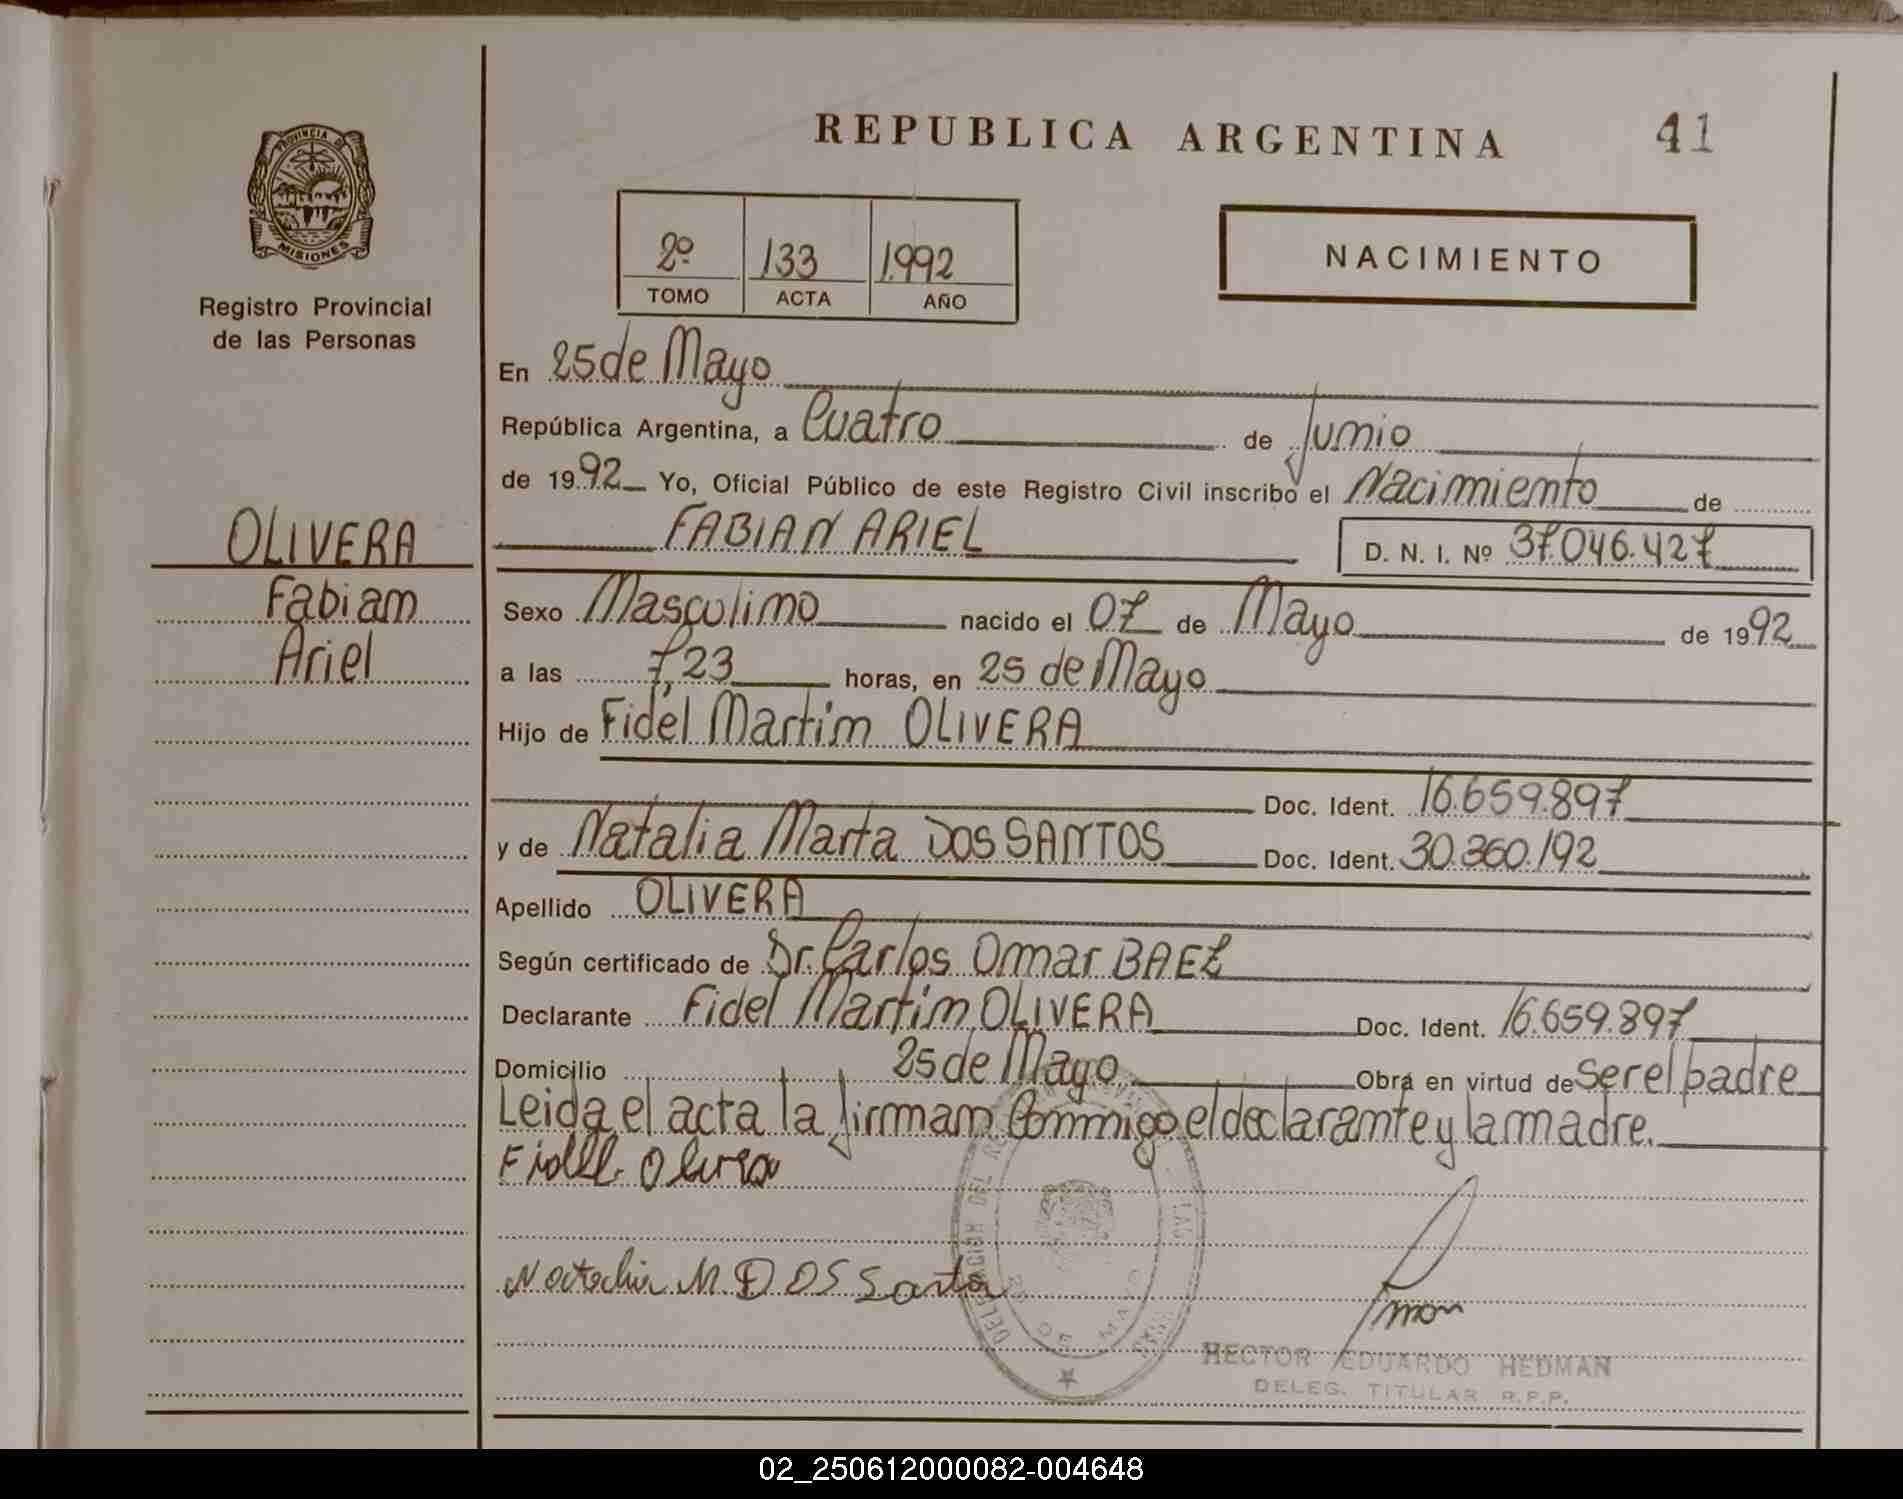 REPUBLICA ARGENTINA
41
PROVINCIA DE
MISIONES
Registro Provincial
de las Personas
2º 133 1992
TOMO ACTA AÑO
NACIMIENTO
En 25 de Mayo
República Argentina, a Cuatro de Junio
de 1992 Yo, Oficial Público de este Registro Civil inscribo el Nacimiento de
FABIAN ARIEL D. N. I. Nº 37.046.427
OLIVERA
Fabian
Ariel
Sexo Masculino nacido el 07 de Mayo de 1992
a las 7,23 horas, en 25 de Mayo
Hijo de Fidel Martin OLIVERA
Doc. Ident. 16.659.897
y de Natalia Marta DOS SANTOS Doc. Ident. 30.360.192
Apellido OLIVERA
Según certificado de Dr. Carlos Omar BAEZ
Declarante Fidel Martin OLIVERA Doc. Ident. 16.659.897
Domicilio 25 de Mayo Obra en virtud de ser el padre
Leida el acta la firman Conmigo el declarante y la madre.
Fidel Olivera
Natalia M. DOS Santo
DELEGACION DEL LAS
25 DE MAYO
HECTOR EDUARDO HEDMAN
DELEG. TITULAR R.P.P.
02_250612000082-004648